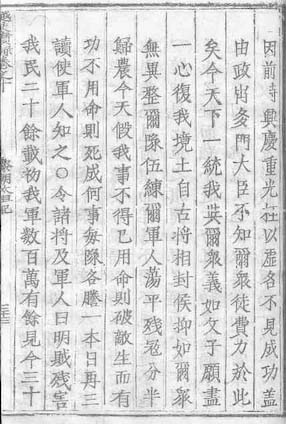 因前寺興慶重光在以虛名不見成功盖
由政出多門大臣不知爾衆徒費力於此
矣今天下一統我與爾衆義如父子願盡
一心復我境土自古將相封侯抑如爾衆
無異整爾隊伍練爾軍人蕩平殘冦分半
歸農今天假我事不得已用命則破敵生而有
功不用命則死成何事每隊各謄一本日再三
讀使軍人知之○令諸將及軍人曰明賊殘害
我民二十餘載物我軍数百萬有餘見今三十